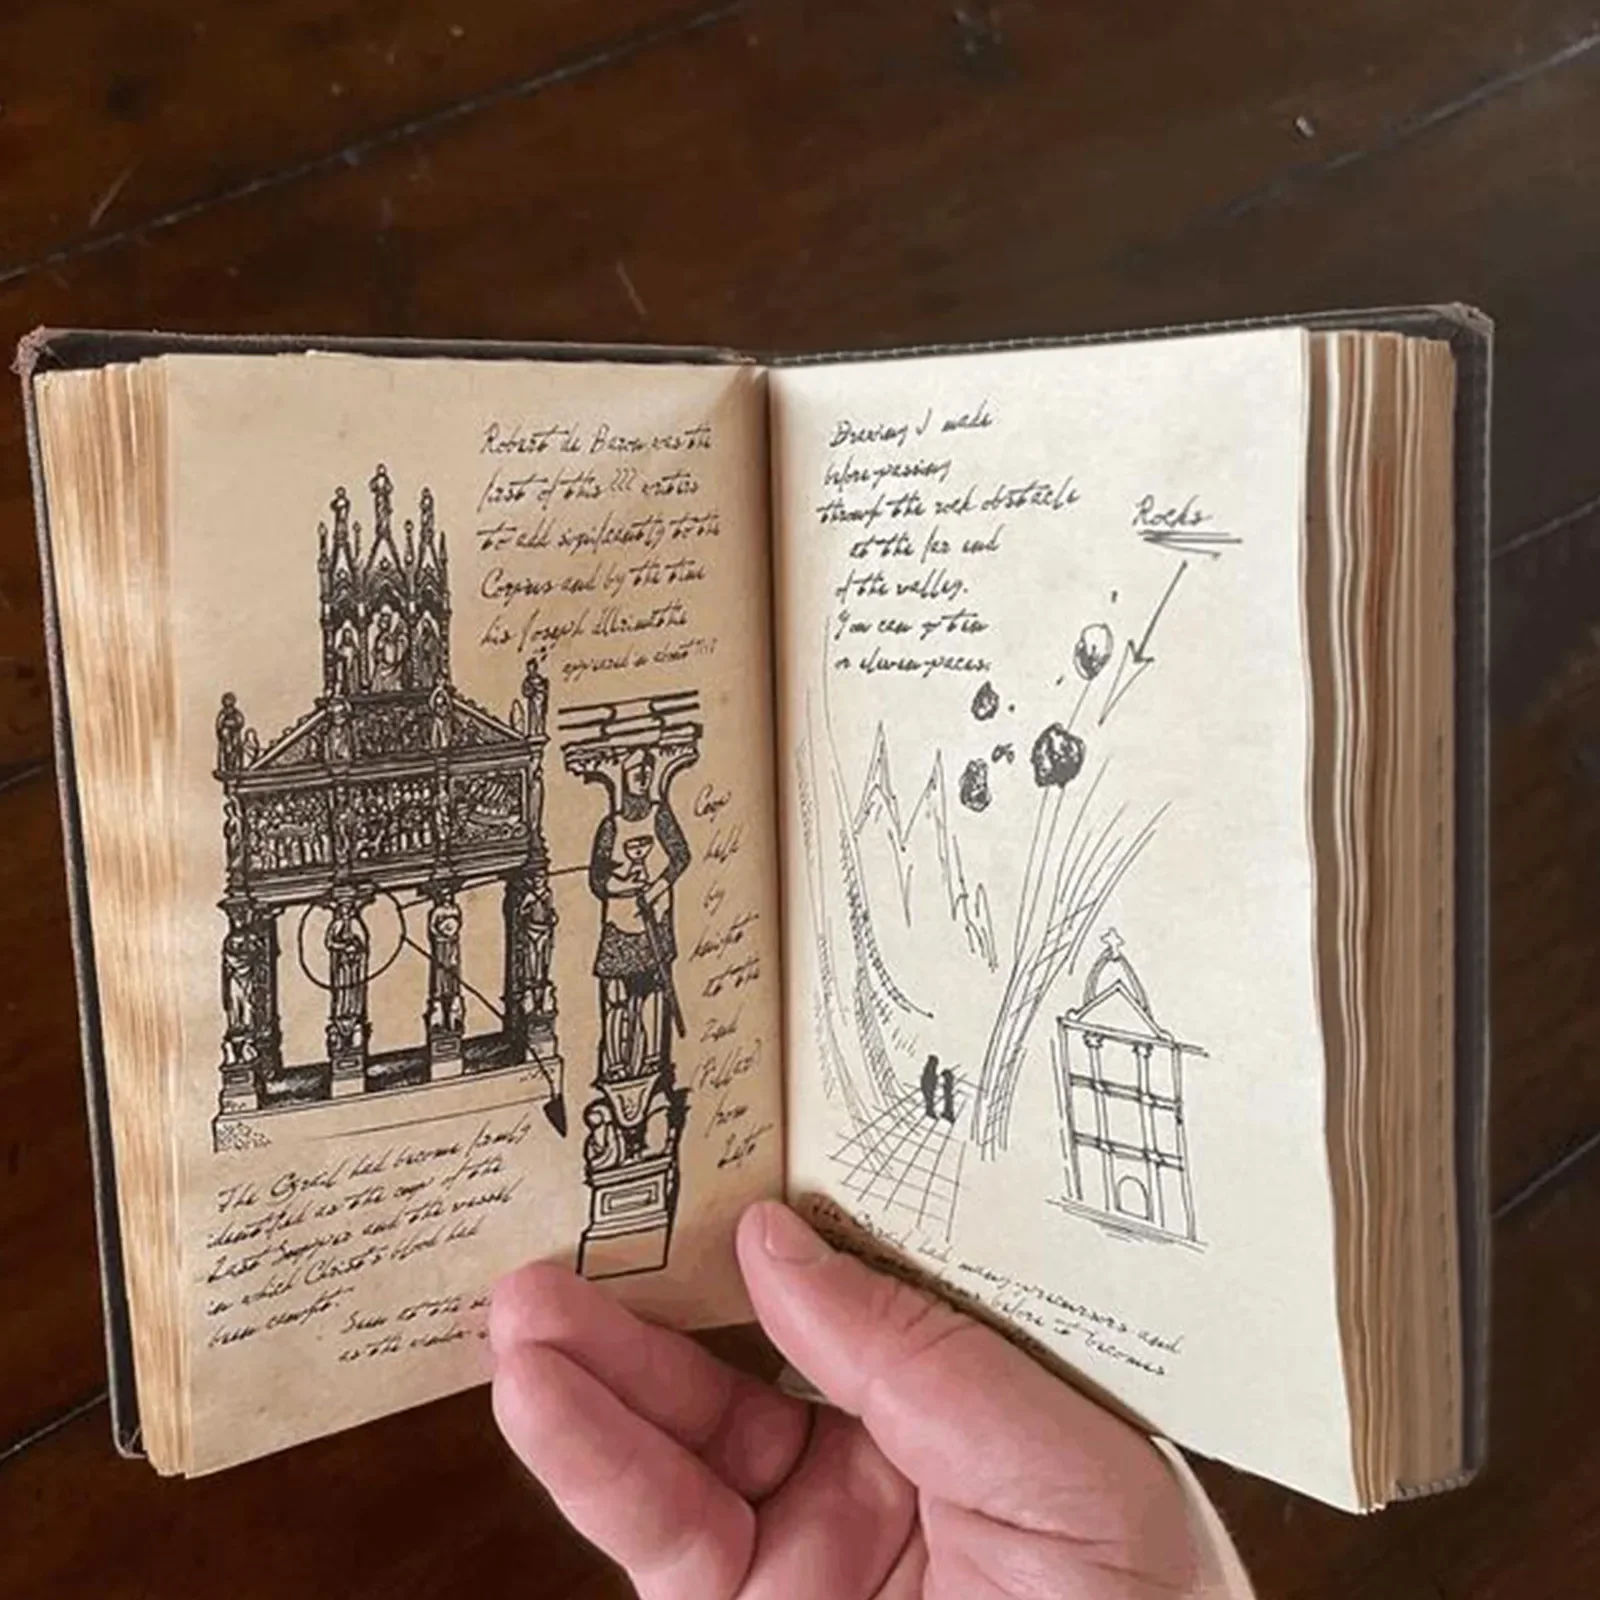 Robert de Baron was the
first of this ??? writers
to add significantly to the
Corpus and by the time
his Joseph
appeared in about
Cup
held
by
knight
to the
2nd
(Pillar)
from
Left
The Grail had become firmly
identified as the cup of the
Last Supper and the vessel
in which Christ's blood had
been caught.
Seen at the
as the
Drawing I made
before passing
through the rock obstacle
at the far end
of the valley.
You can go ten
or eleven paces.
Rocks
The Grail had many precursors and
before it becomes